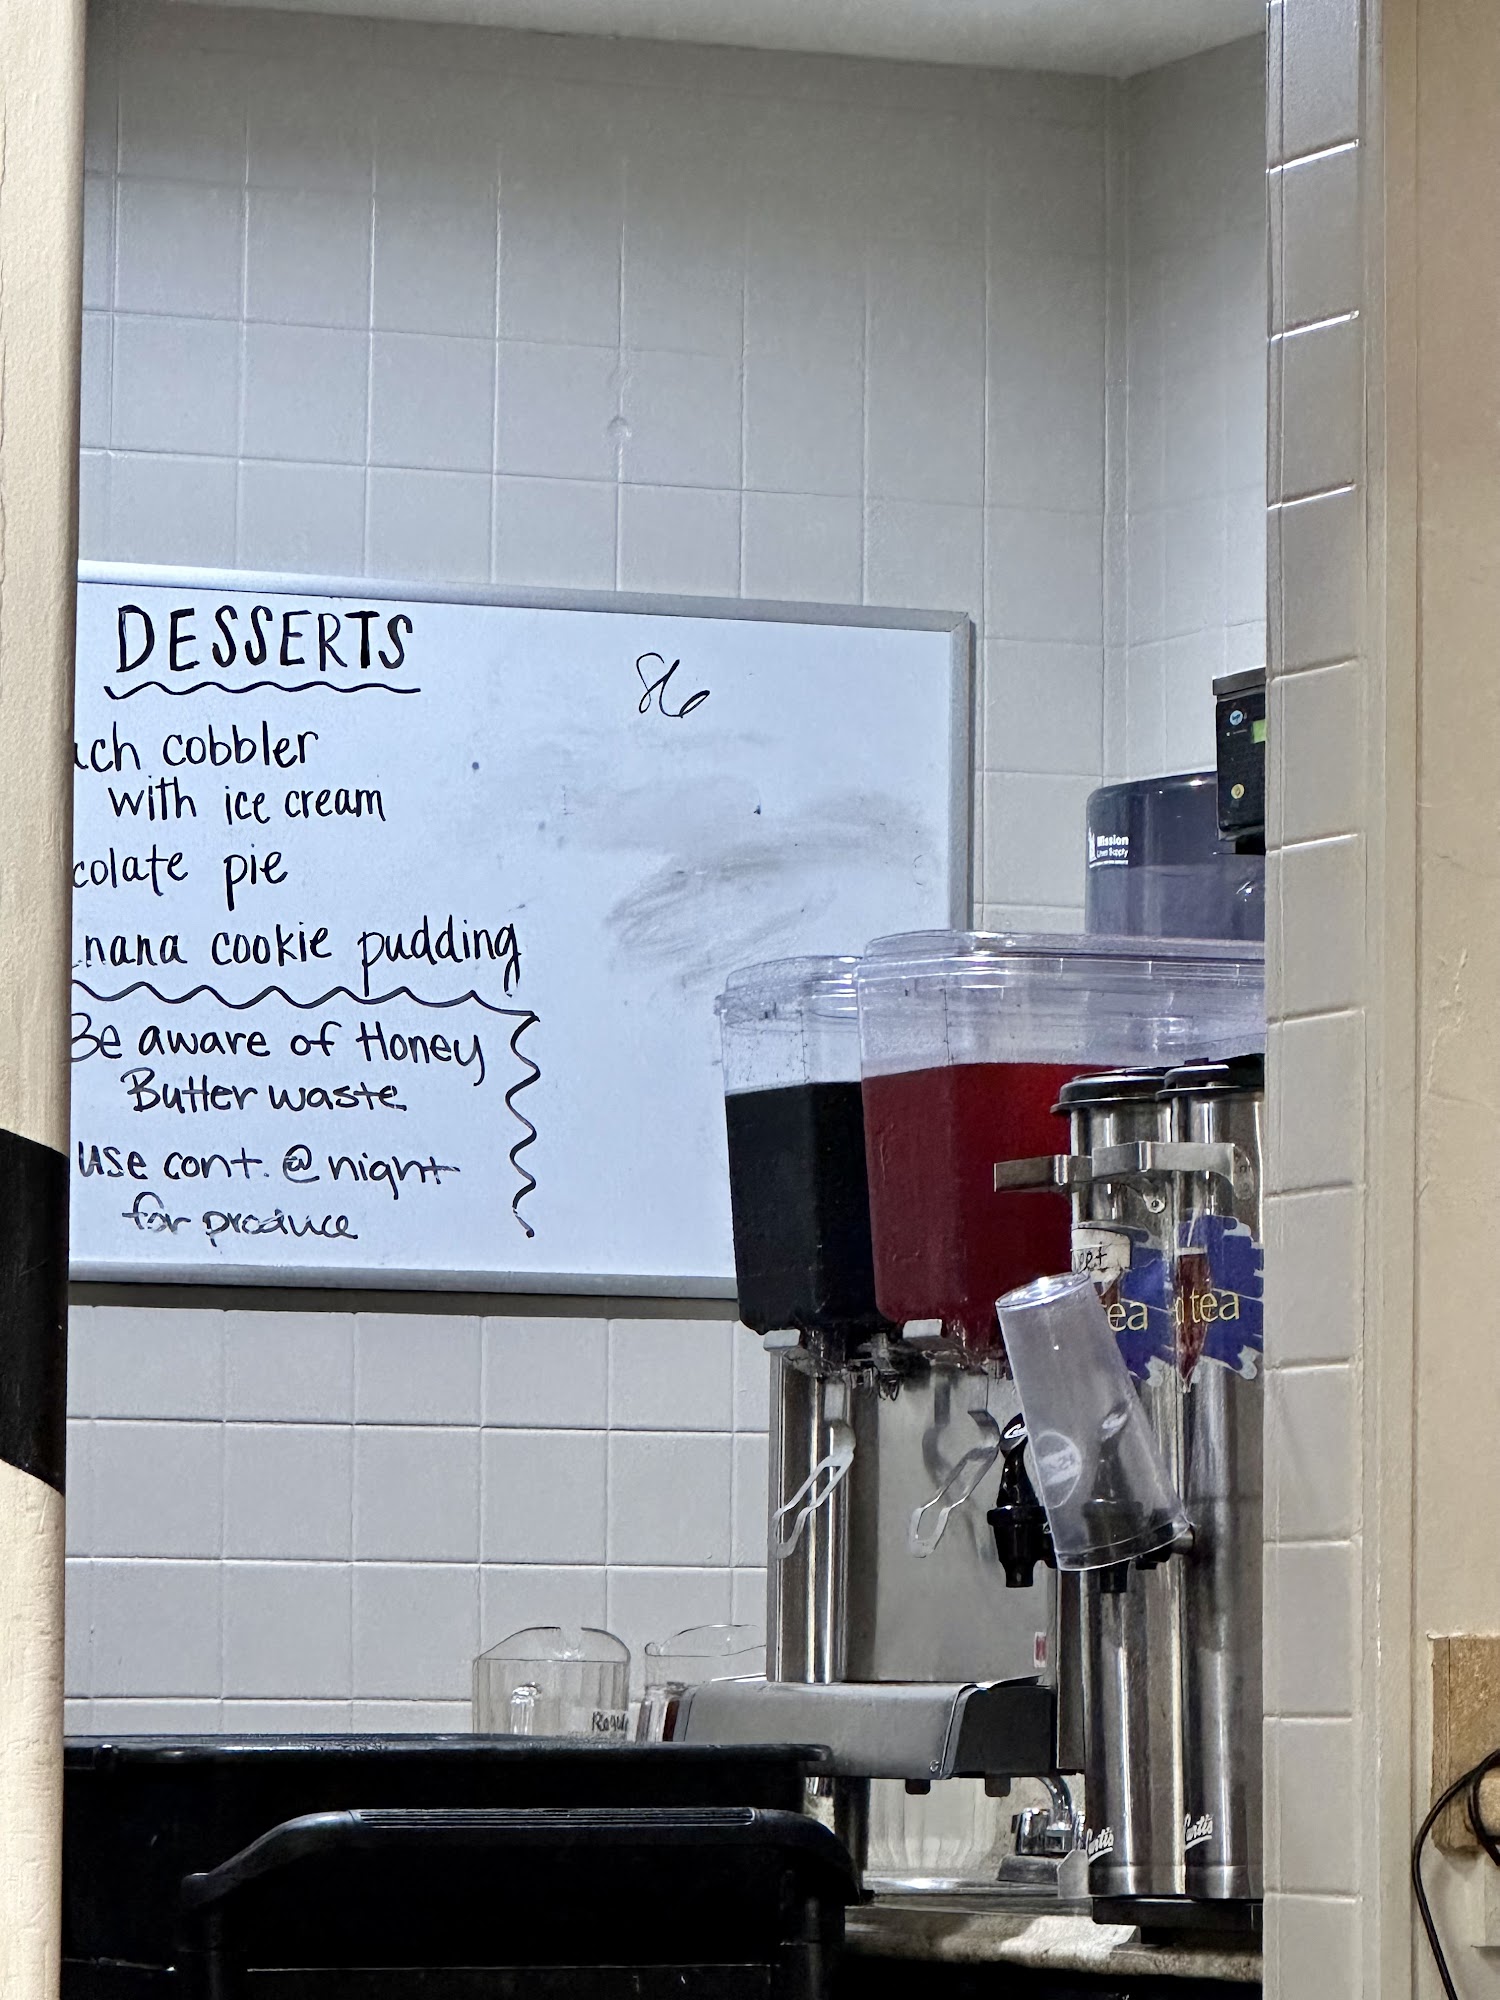 DESSERTS
86
ach cobbler
with ice cream
colate pie
nana cookie pudding
Be aware of Honey
Butter waste
use cont. @ night
for produce
Mission
Linen Supply
eet
ea
d tea
Regul
Curtis
Curtis